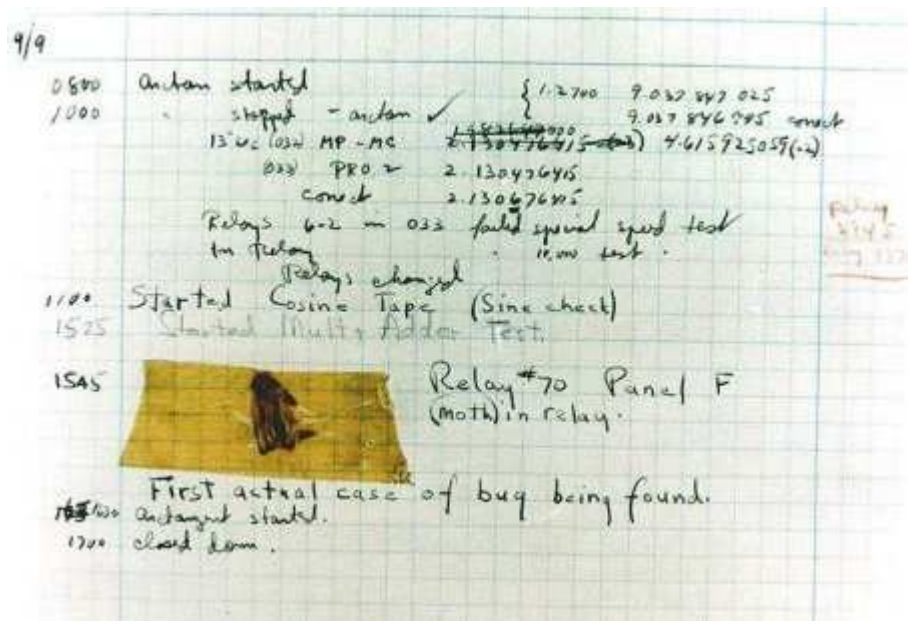 9/9
0800 Antan started
1000 " stopped - antan ✓ { 1.2700 9.037 847 025
9.037 846 995 correct
13"uc (032) MP - MC 2.130476415 (-3) 4.615925059(-2)
(033) PRO 2 2.130476415
correct 2.130676415
Relays 6-2 in 033 failed special speed test
in Relay " 10,000 test .
Relays changed
1100 Started Cosine Tape (Sine check)
1525 Started Mult+Adder Test.
1545 Relay #70 Panel F
(moth) in relay.
First actual case of bug being found.
1630 antangent started.
1700 closed down.
Relay